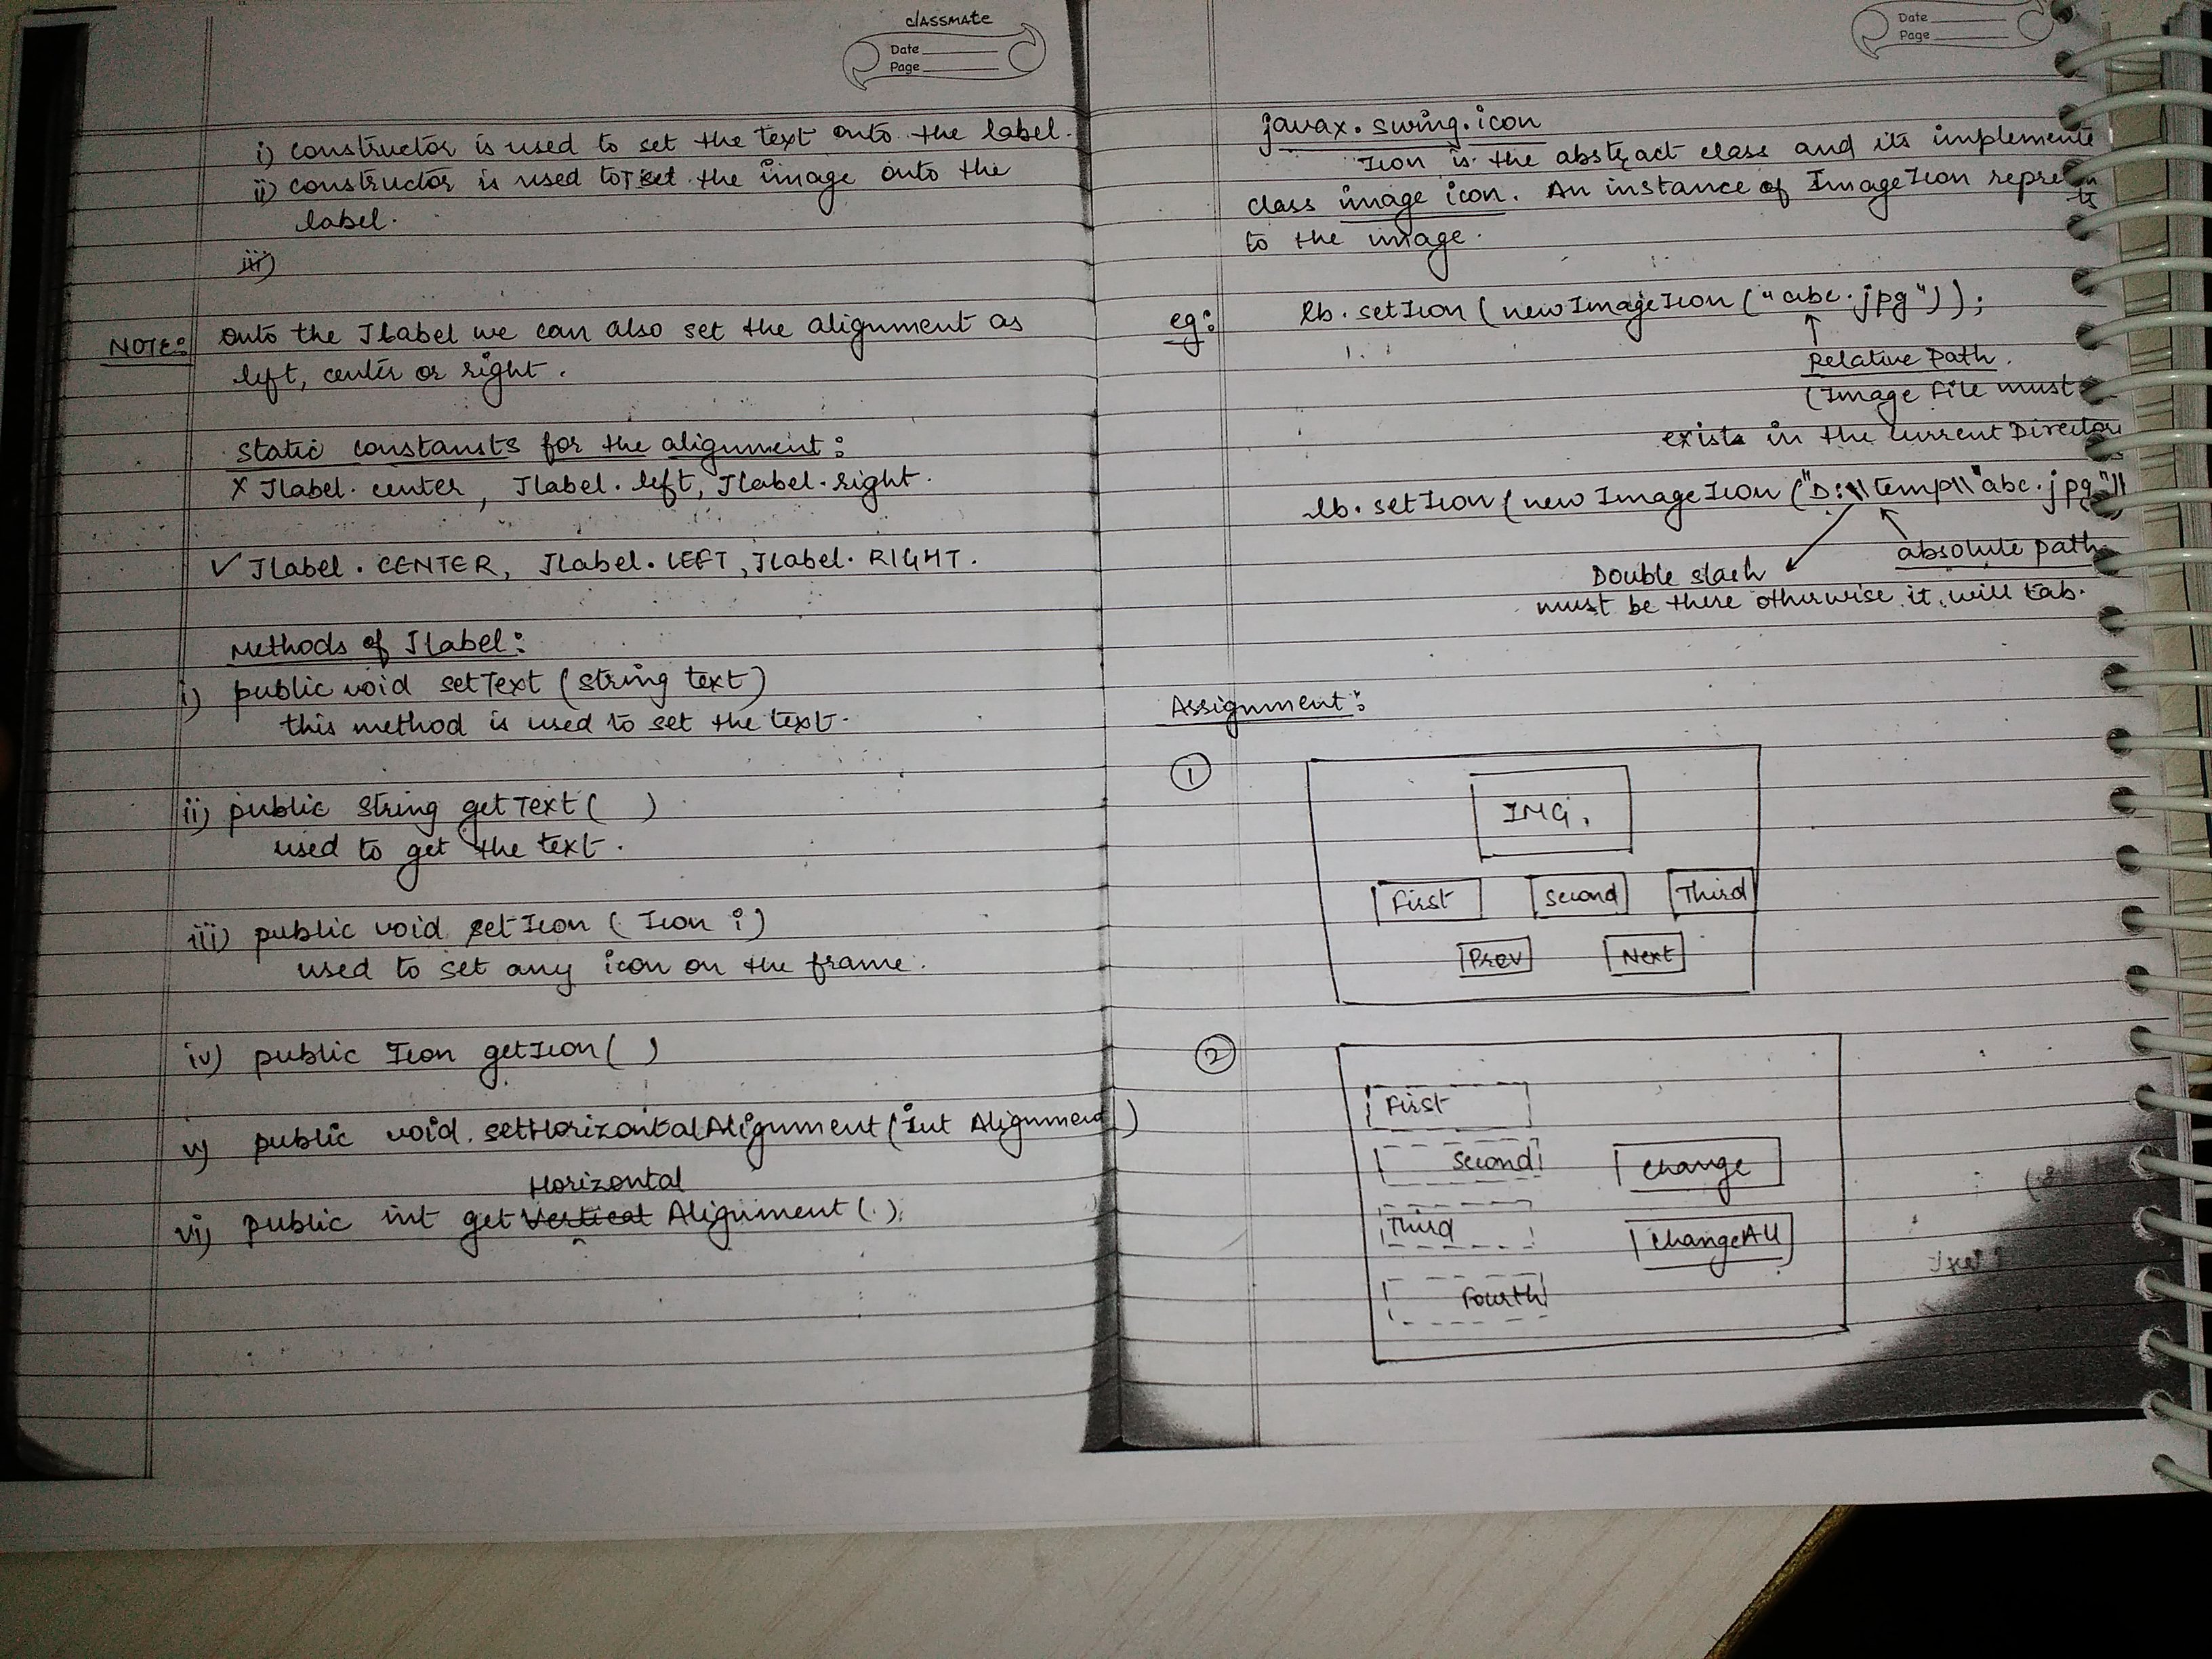 classmate
Date
Page
i) constructor is used to set the text onto the label.
ii) constructor is used to set the image onto the
label.
iii)
NOTE: Onto the JLabel we can also set the alignment as
left, center or right.
Static constansts for the alignment:
X Jlabel.center, Jlabel.left, Jlabel.right.
✓ JLabel.CENTER, JLabel.LEFT, JLabel.RIGHT.
Methods of JLabel:
i) public void setText (String text)
this method is used to set the text.
ii) public String getText( )
used to get the text.
iii) public void setIcon ( Icon i)
used to set any icon on the frame.
iv) public Icon getIcon( )
v) public void setHorizontalAlignment(int Alignment)
Horizontal
vi) public int get Vertical Alignment(.).
Date
Page
javax.swing.icon
Icon is the abstract class and its implemente
class image icon. An instance of ImageIcon represents
to the image.
eg: lb.setIcon(new ImageIcon ("abc.jpg"));
Relative Path.
(Image File must
exist in the current Director
lb.setIcon(new ImageIcon ("D:\\temp\\"abc.jpg"))
absolute path
Double slash
must be there otherwise it will tab.
Assignment:
1
IMG.
First Second Third
Prev Next
2
First
Second Change
Third ChangeAll
Fourth